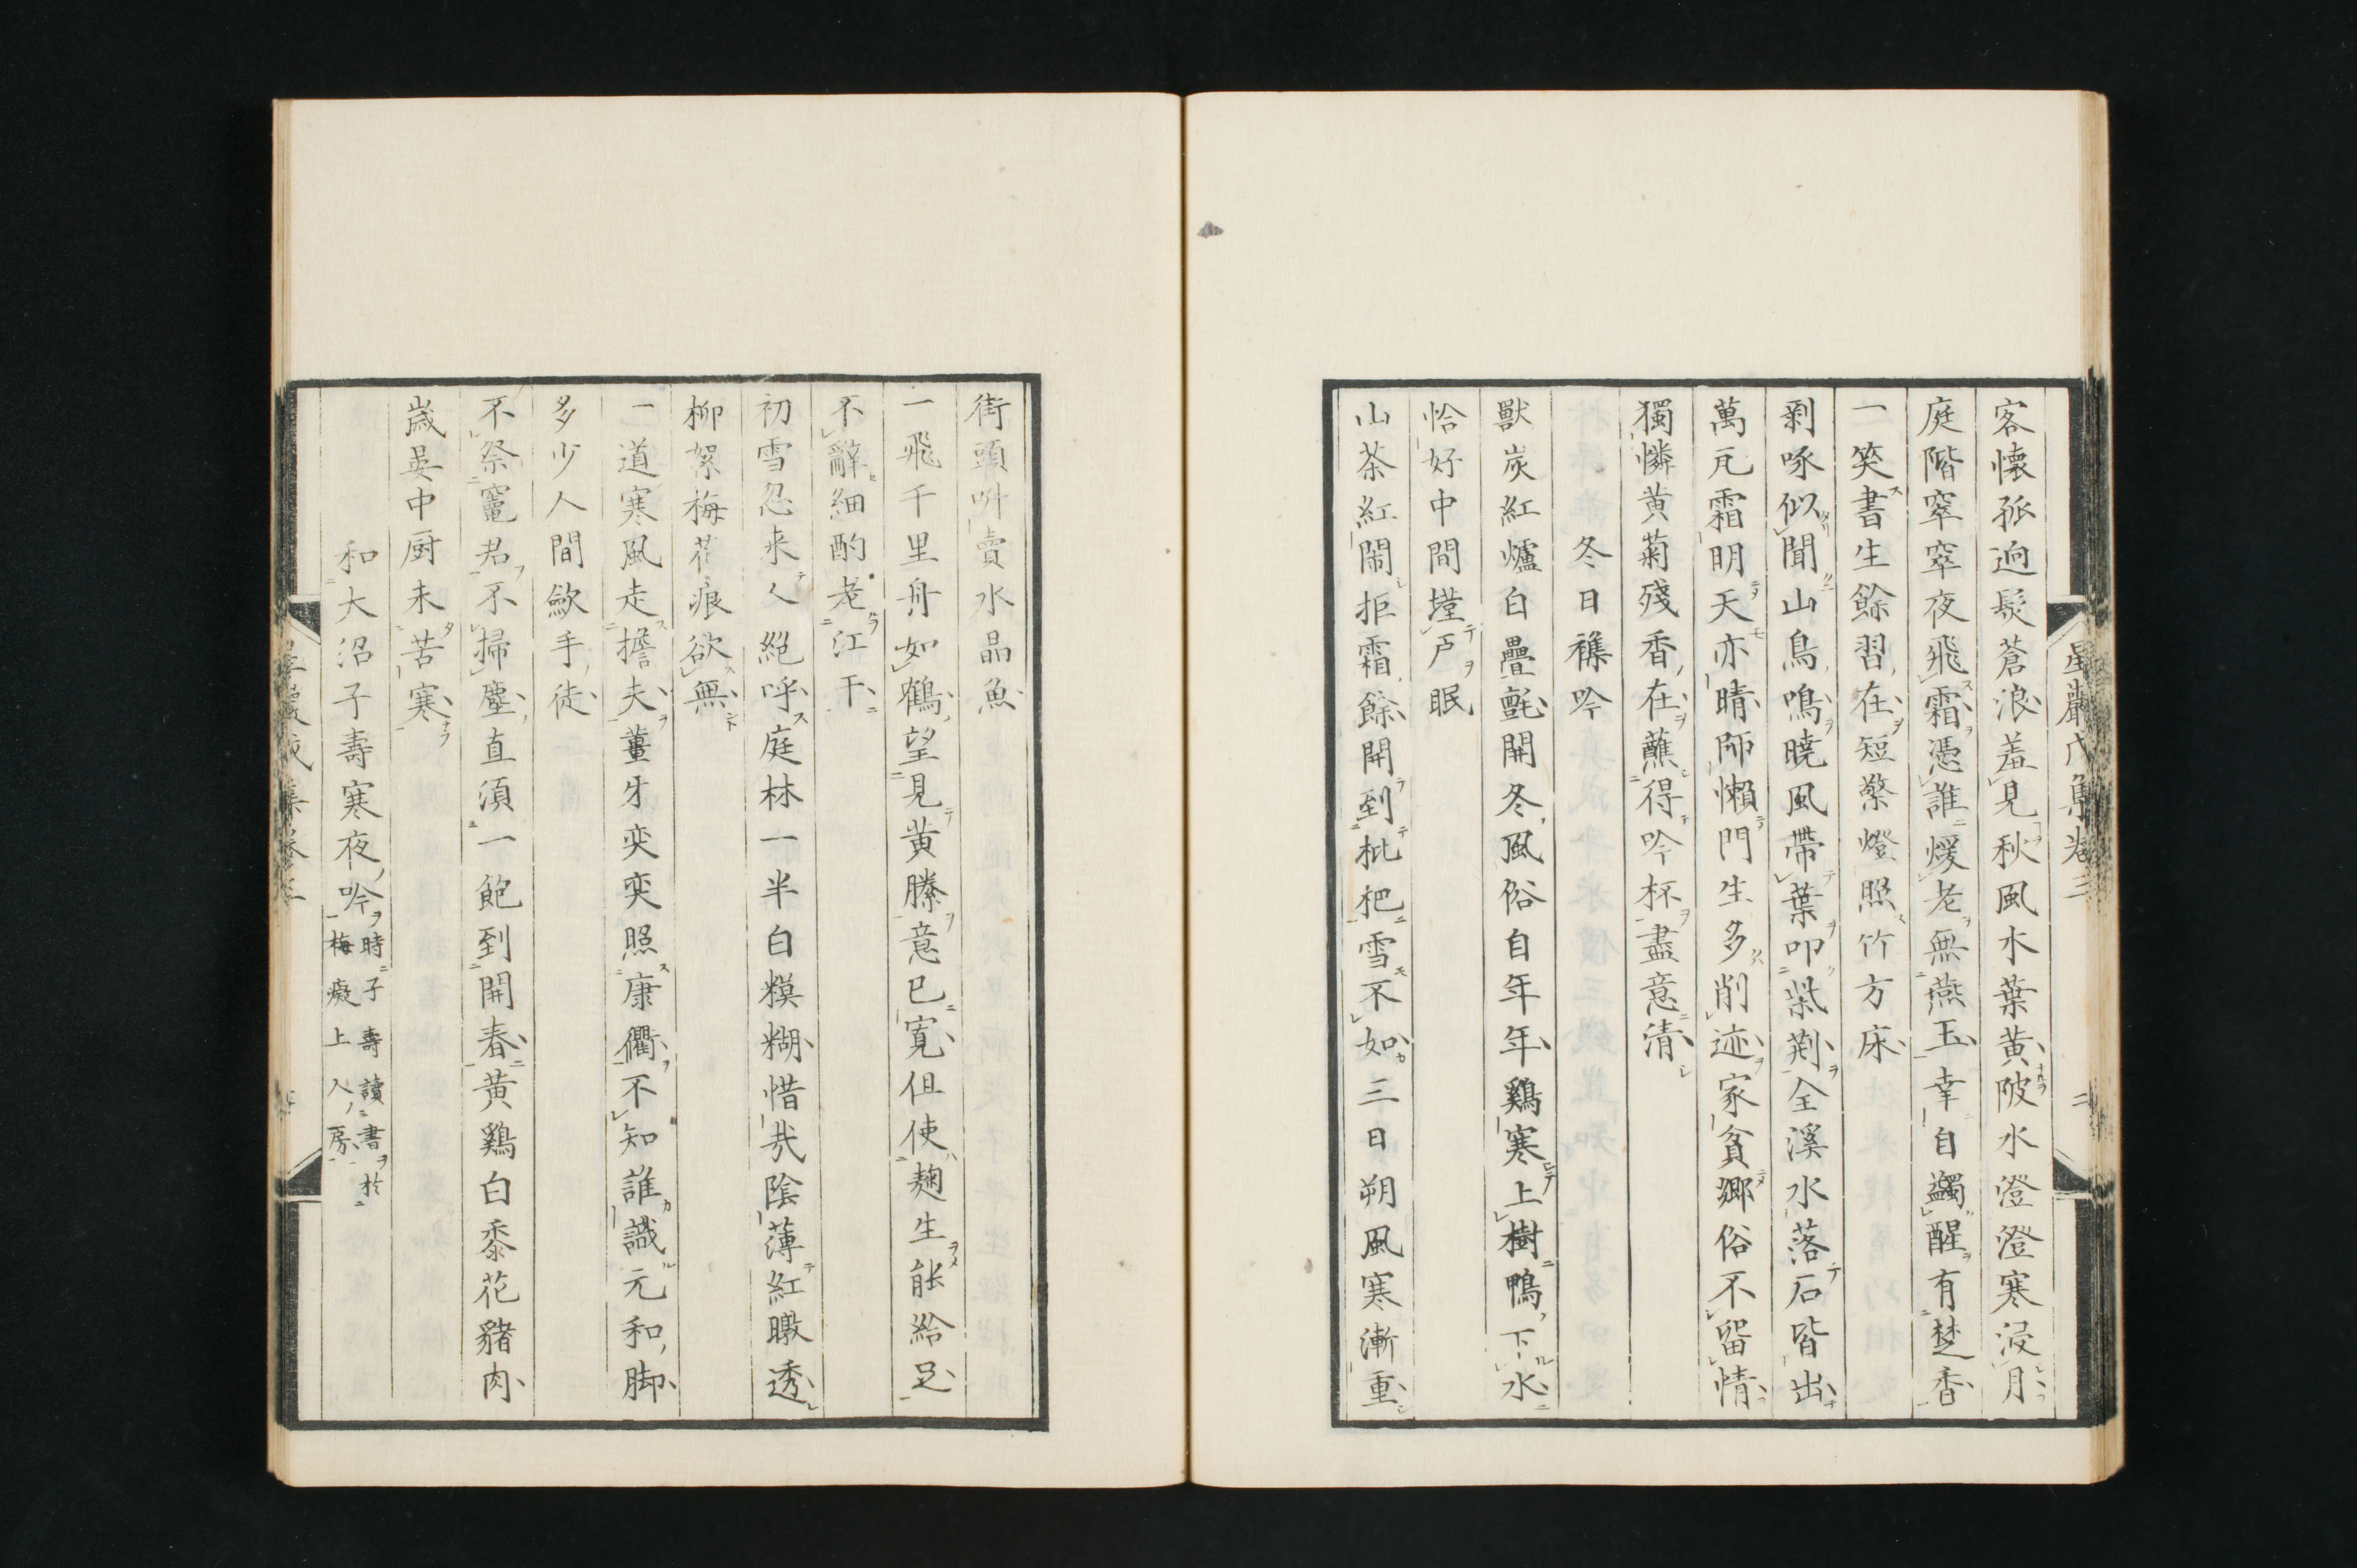 客懷孤逈髮蒼浪羞見秋風木葉黃陂水澄澄寒浸月
庭階窣窣夜飛霜憑誰煖老無燕玉幸自蠲醒有楚香
一笑書生餘習在短檠燈照竹方床
剥啄似聞山鳥鳴曉風帶葉叩柴荆全溪水落石皆出
萬瓦霜明天亦晴師懶門生多削迹家貧郷俗不留情
獨憐黄菊殘香在蘸得吟杯盡意清
冬日襍吟
獸炭紅爐白疊氈開冬風俗自年年鷄寒上樹鴨下水
恰好中間墐戸眠
山茶紅閙拒霜餘開到枇杷雪不如三日朔風寒漸重
街頭呌賣水晶魚
一飛千里舟如鶴望見黄縢意已寛但使麹生能給足
不辭細酌老江干
初雪忍来人絶呼庭林一半白糢糊惜哉陰薄紅暾透
柳絮梅花痕欲無
一道寒風走擔夫薑牙奕奕照康衢不知誰識元和脚
多少人間歛手徒
不祭竈君不掃塵直須一飽到開春黄鷄白黍花豬肉
歳晏中厨未苦寒
和大沼子壽寒夜吟時子壽讀書於梅癡上人房